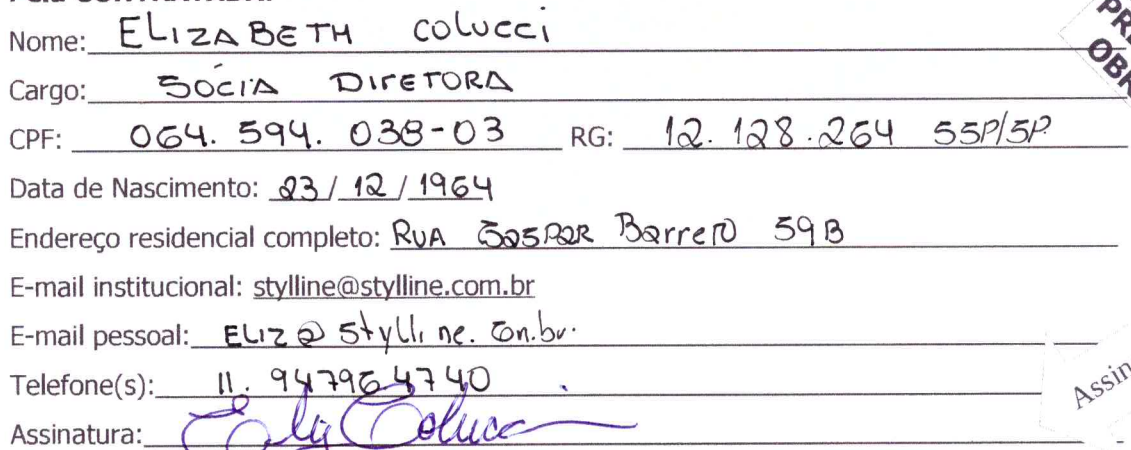 Nome: ELIZABETH COLUCCI
Cargo: SÓCIA DIRETORA
CPF: 064. 594. 038-03 RG: 12. 128.264 SSP/SP
Data de Nascimento: 23 / 12 / 1964
Endereço residencial completo: RUA GASPAR Barreto 59B
E-mail institucional: stylline@stylline.com.br
E-mail pessoal: ELIZ @ stylline. com.br.
Telefone(s): 11. 947964740
Assinatura: Eliz Colucci
Assin